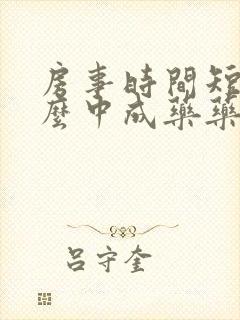 房事時間短
麼中成藥藥
呂守奎